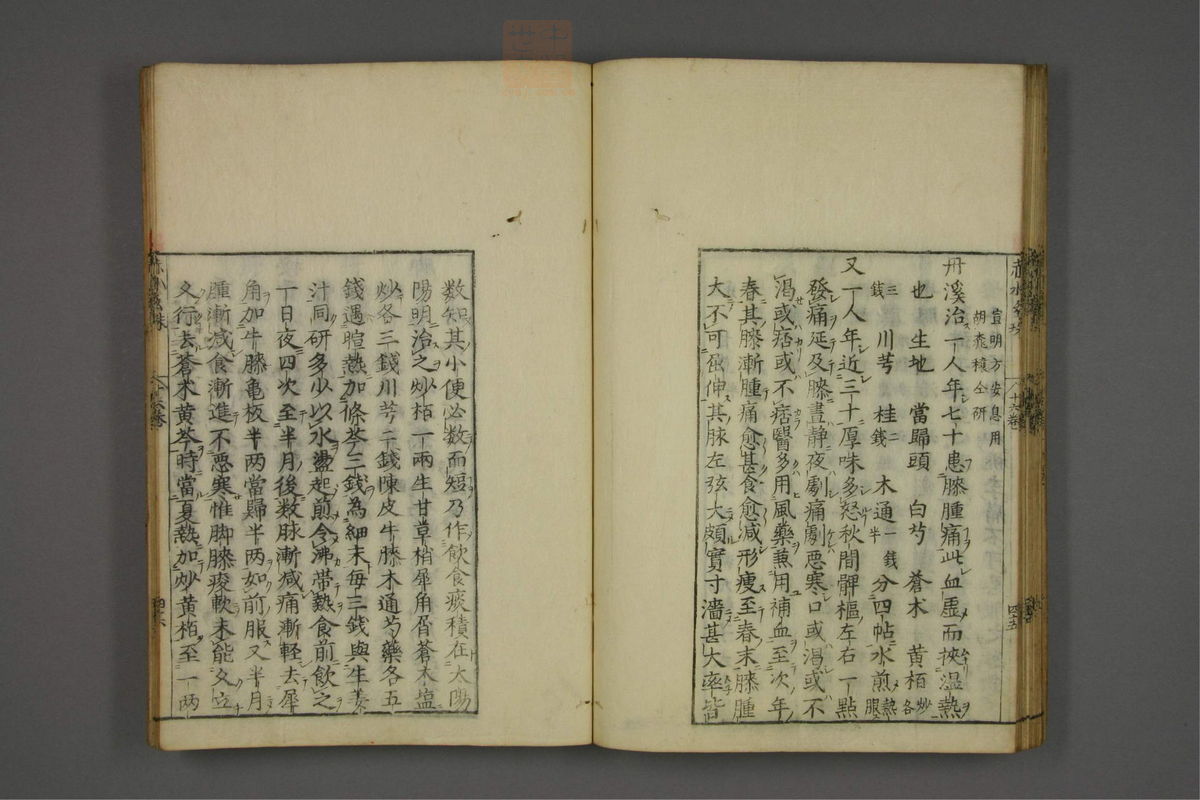 宣明方安息用
胡桃核仝研
丹溪治一人年七十患膝腫痛此血虚而挾温熱
也 生地 當歸頭 白芍 蒼木 黄栢炒各
三錢 川芎 桂二錢 木通一錢半 分四帖水煎熱服
又一人年近三十厚味多怒秋間髀樞左右一點
發痛延及膝晝静夜劇痛劇悪寒口或渇或不
渇或痞或不痞醫多用風藥兼用補血至次年
春其膝漸腫痛愈甚食愈减形痩至春末膝腫
大不可屈伸其脉左弦大頗實寸濇甚大率皆
数知其小便必数而短乃作飲食痰積在太陽
陽明治之炒栢一兩生甘草梢犀角屑蒼木塩
炒各三錢川芎二錢陳皮牛膝木通芍藥各五
錢遇暄熱加條芩三錢為細末每三錢與生姜
汁同研多少以水盪起煎令沸帯熱食前飲之
一日夜四次至半月後数脉漸减痛漸輕去犀
角加牛膝亀板半两當歸半两如前服又半月
腫漸减食漸進不悪寒惟脚膝痠軟未能久立
久行去蒼木黄芩時當夏熱加炒黄栢至一两